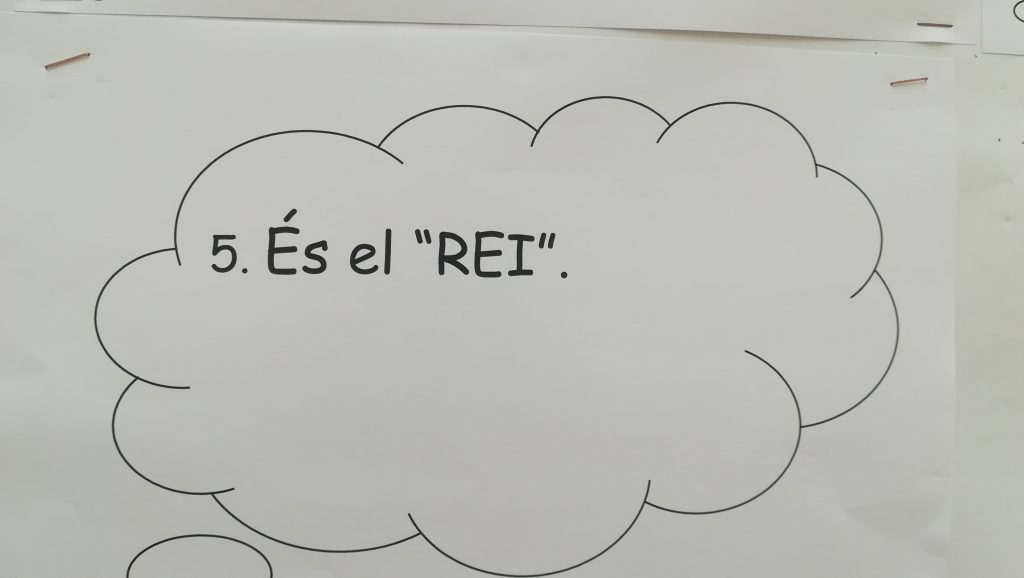 5. És el "REI".